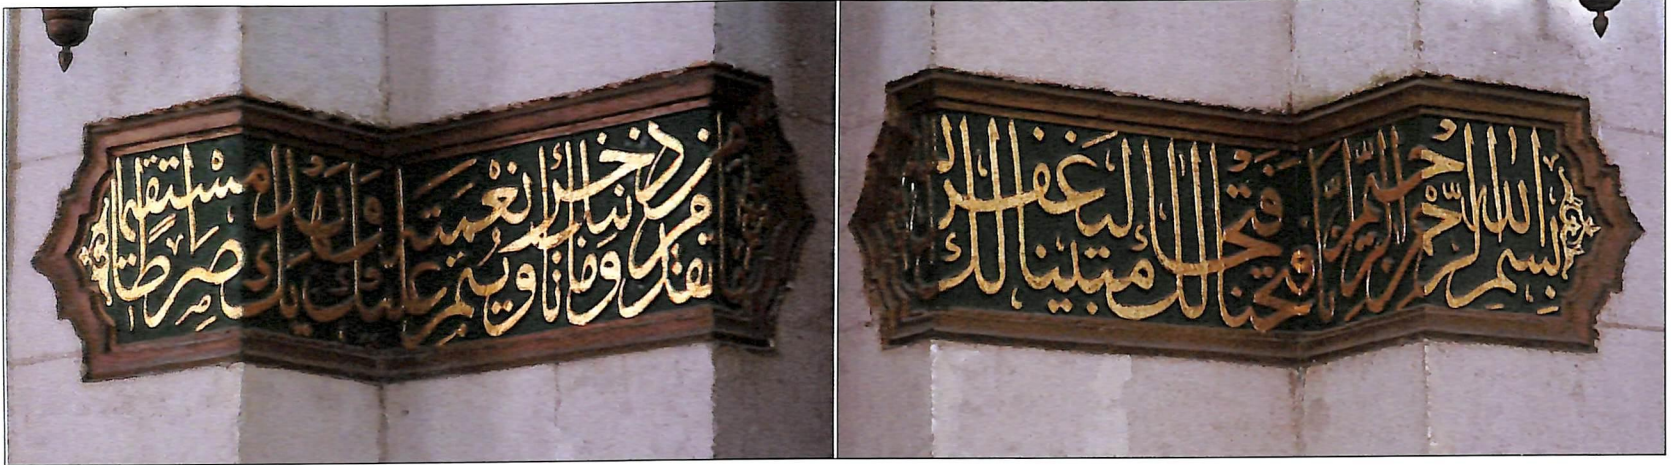 بسم الله الرحمن الرحيم إنا فتحنا لك فتحا مبينا ليغفر لك
ما تقدم من ذنبك وما تأخر ويتم نعمته عليك ويهديك صراطا مستقيما